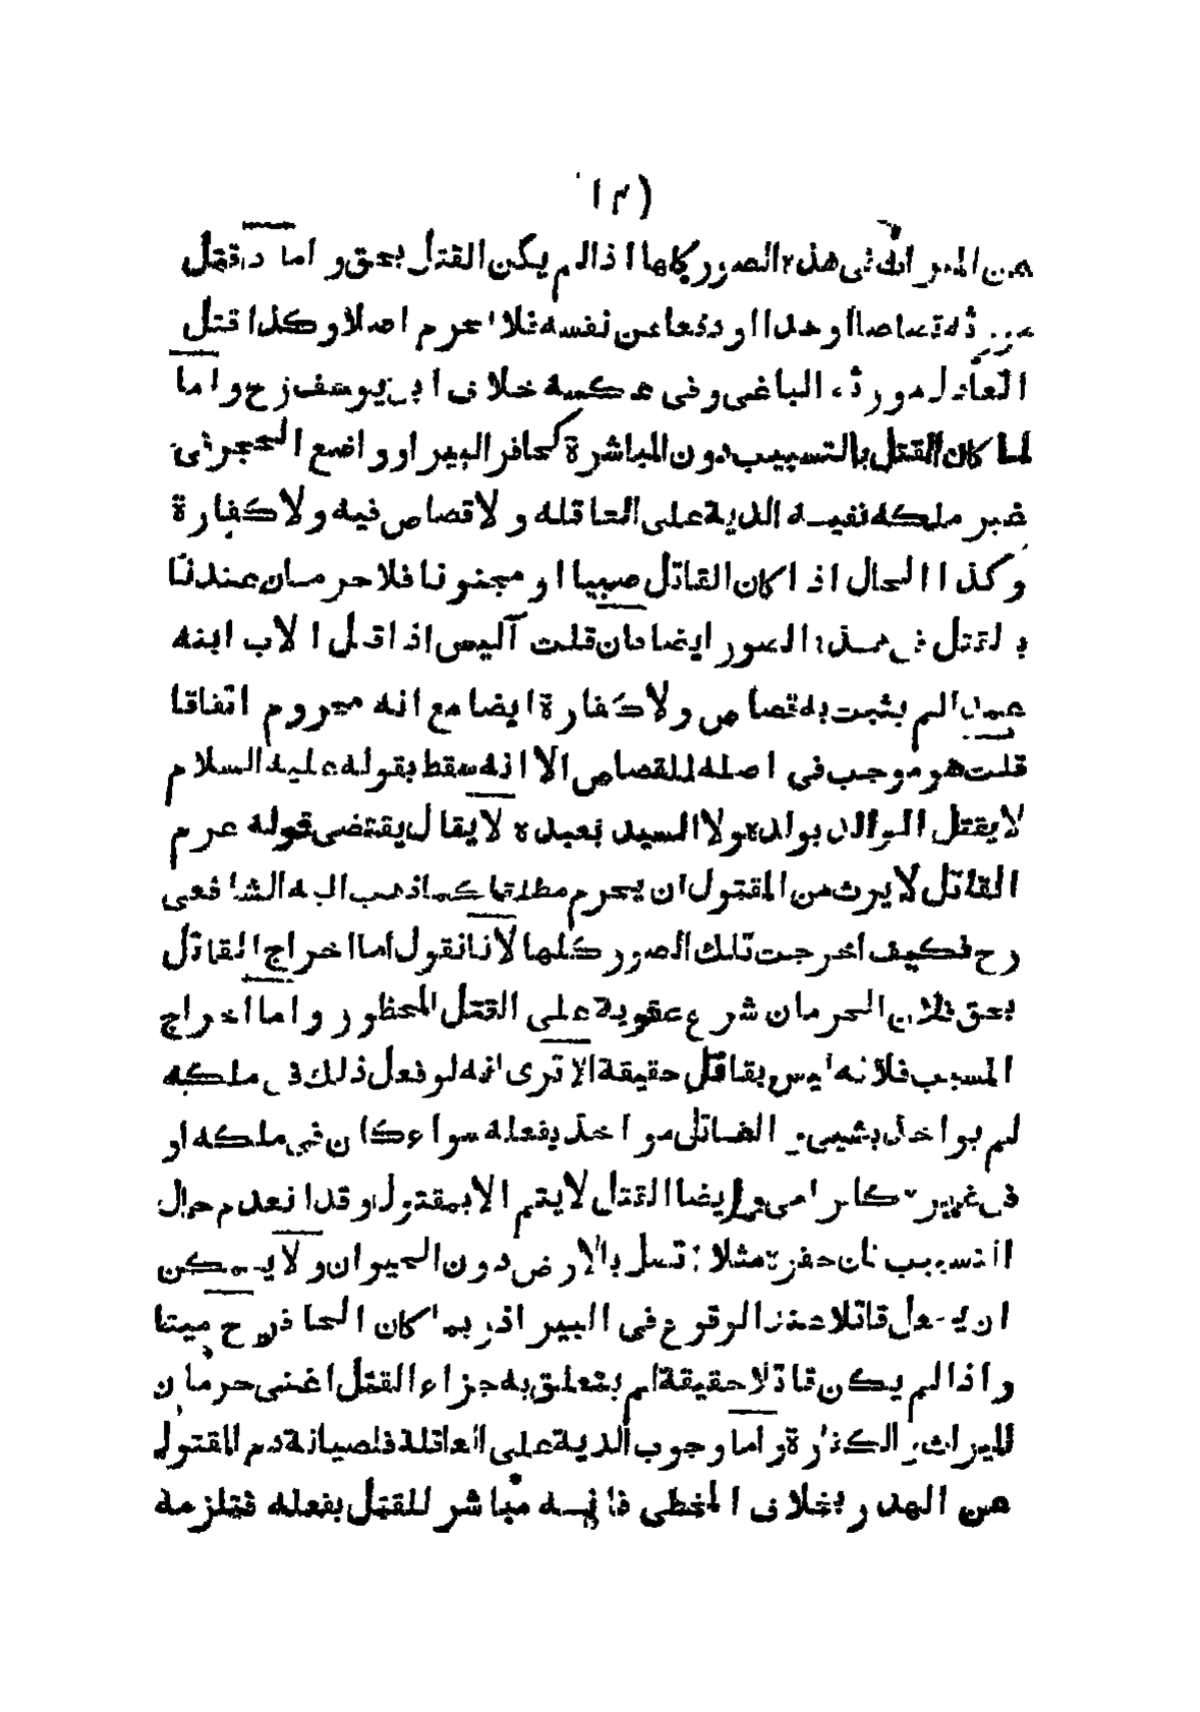 (١٣)
عن الميراث في هذه الصور كلها اذا لم يكن القتل بحق و اما اذا قتل
مورثه قصاصا او حدا او دفعا عن نفسه فلا يحرم اصلا و كذا قتل
العادل مورثه الباغى و فى عكسه خلاف ابى يوسف رح و اما
اما كان القتل بالتسبيب دون المباشرة كحافر البير او واضع الحجر فى
غير ملكه ففيه الدية على العاقله و لا قصاص فيه و لا كفارة
و كذا الحال اذا كان القاتل صبيا او مجنونا فلا حرمان عندنا
بالقتل فى هذه الصور ايضا فان قلت آليس اذا قتل الاب ابنه
عمدا لم يثبت به قصاص و لا كفارة ايضا مع انه محروم اتفاقا
قلت هو موجب فى اصله للقصاص الا انه سقط بقوله عليه السلام
لا يقتل الوالد بولده و لا السيد بعبده لا يقال يقتضى قوله عم
القاتل لا يرث من المقتول ان يحرم مطلقا كما ذهب اليه الشافعى
رح فكيف اخرجت تلك الصور كلها لانا نقول اما اخراج القاتل
بحق فلان الحرمان شرع عقوبة على القتل المحظور و اما اخراج
المسبب فلانه ليس بقاتل حقيقة الا ترى انه لو فعل ذلك فى ملكه
لم يواخذ بشيى و القاتل مواخذ بفعله سواء كان فى ملكه او
فى غيره كالرامى و ايضا القتل لا يتم الا بمقتول و قد انعدم حال
التسبيب فان حفره مثلا اتصل بالارض دون الحيوان و لا يمكن
ان يجعل قاتلا عند الوقوع فى البير اذ ربما كان الحافر ح ميتا
و اذا لم يكن قاتلا حقيقة لم يتعلق به جزاء القتل اعنى حرمان
الميراث و الكفارة و اما وجوب الدية على العاقلة فلصيانة دم المقتول
عن الهدر بخلاف المخطى فانه مباشر للقتل بفعله فتلزمه